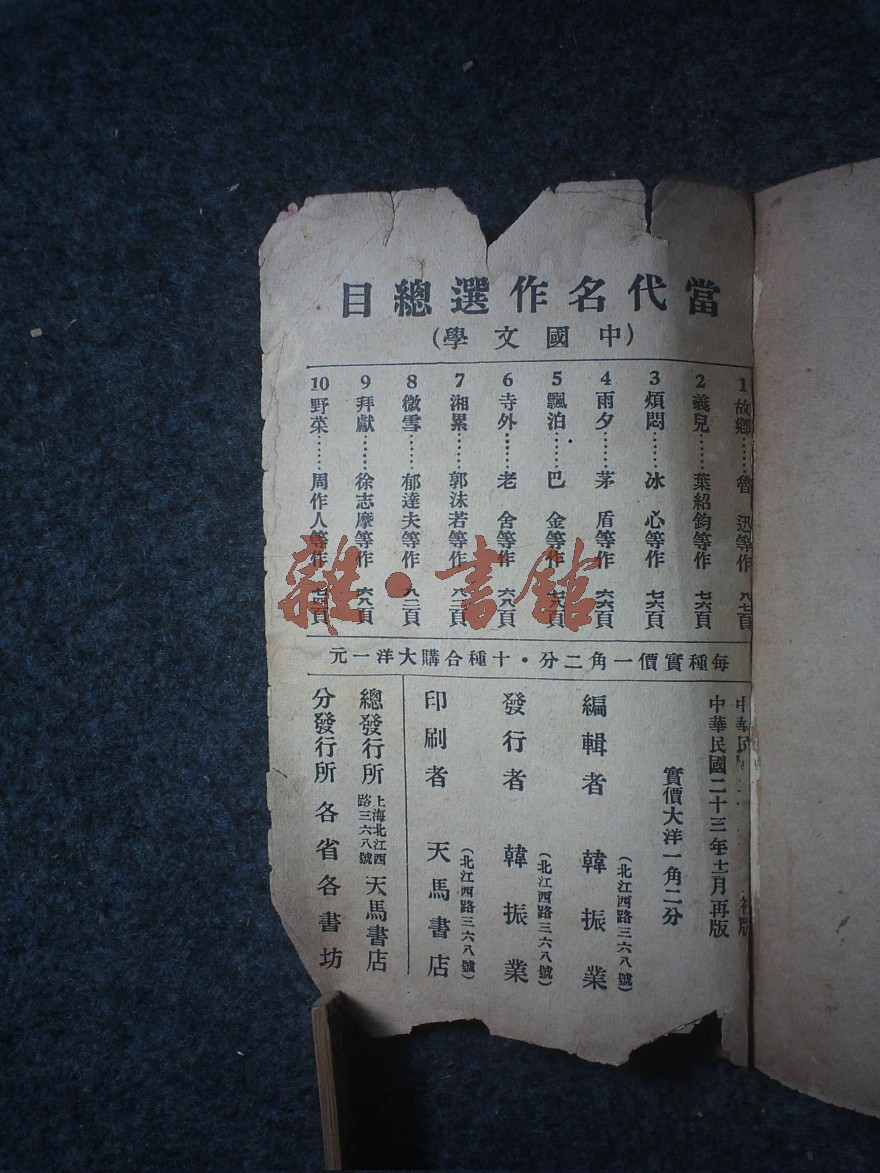 當代名作選總目
(中國文學)
1 故鄉……魯 迅等作 八七頁
2 義兒……葉紹鈞等作 七六頁
3 煩悶……冰 心等作 七六頁
4 雨夕……茅 盾等作 六六頁
5 飄泊……巴 金等作
6 寺外……老 舍等作 六八頁
7 湘累……郭沫若等作 八二頁
8 微雪……郁達夫等作 八二頁
9 拜獻……徐志摩等作 六八頁
10 野菜……周作人等作
每種實價一角二分·十種合購大洋一元
中華 初版
中華民國二十三年十二月再版
實價大洋一角二分
編輯者 韓振業
(北江西路三六八號)
發行者 韓振業
(北江西路三六八號)
印刷者 天馬書店
(北江西路三六八號)
總發行所 上海北江西路三六八號 天馬書店
分發行所 各省各書坊
雜·書館